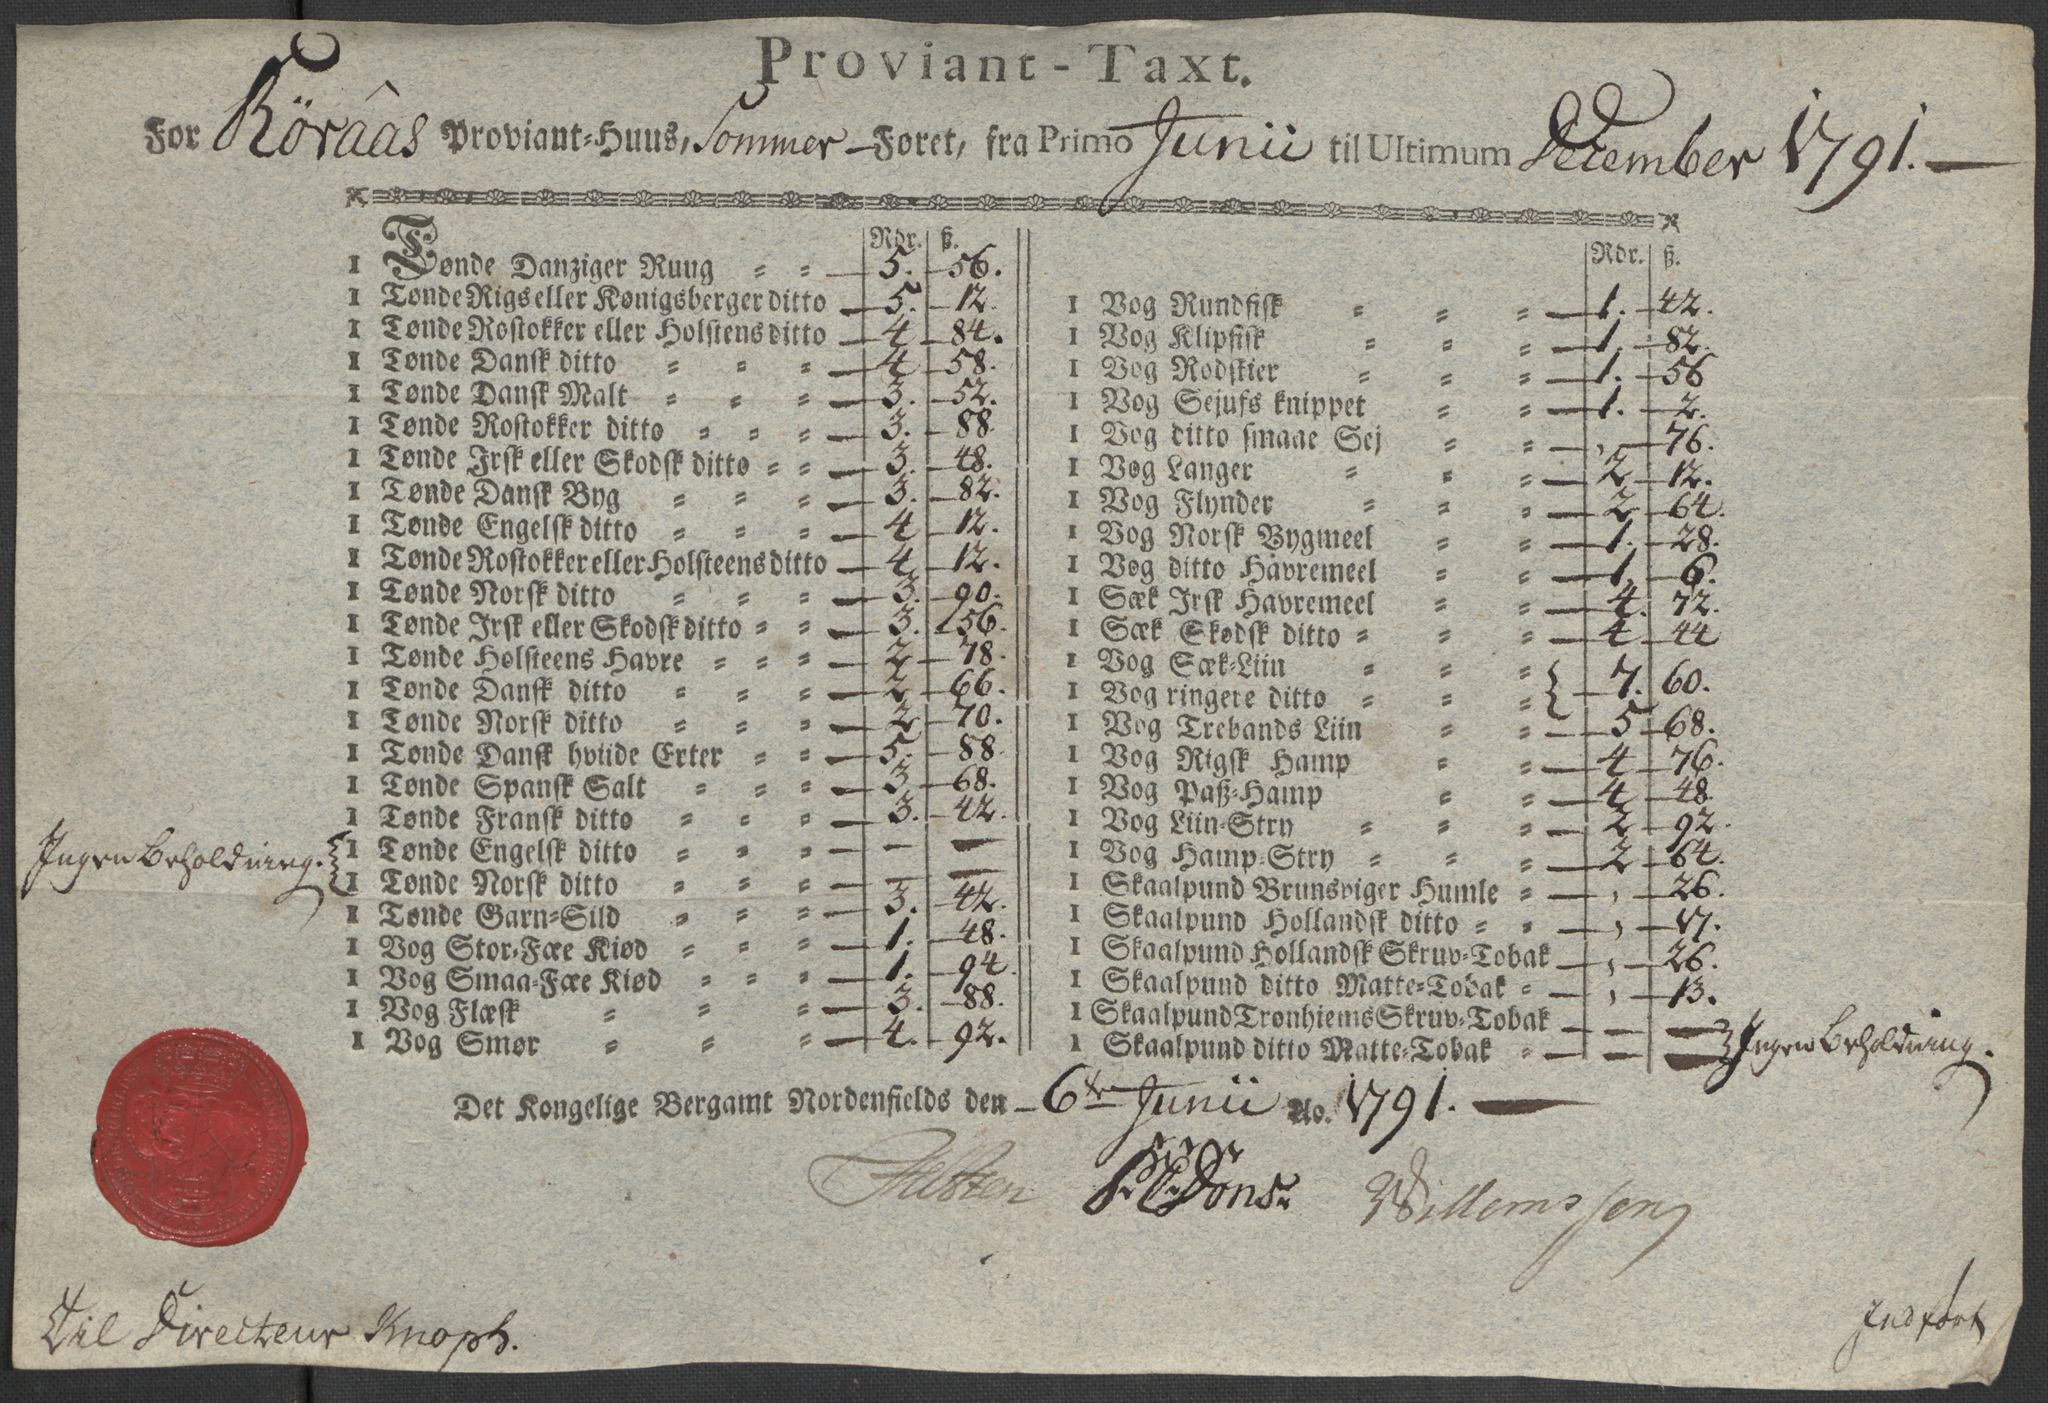 Proviant-Taxt.
For Röraas Proviant-Huus, Sommer-Føret, fra Primo Junii til Ultimum December 1791.
Rdr. ß.
1 Tønde Danziger Ruug 5. 56.
1 Tønde Rigs eller Kønigsberger ditto 5. 12.
1 Tønde Rostokker eller Holstens ditto 4 84.
1 Tønde Dansk ditto 4 58.
1 Tønde Dansk Malt 3. 52.
1 Tønde Rostokker ditto 3. 88.
1 Tønde Irsk eller Skodsk ditto 3. 48.
1 Tønde Dansk Byg 3. 82.
1 Tønde Engelsk ditto 4 12.
1 Tønde Rostokker eller Holsteens ditto 4. 12.
1 Tønde Norsk ditto 3. 90.
1 Tønde Irsk eller Skodsk ditto 3. 56.
1 Tønde Holsteens Havre 2 78.
1 Tønde Dansk ditto 2 66.
1 Tønde Norsk ditto 2 70.
1 Tønde Dansk hviide Erter 5. 88
1 Tønde Spansk Salt 3 68.
1 Tønde Fransk ditto 3. 42.
Ingen beholdning. 1 Tønde Engelsk ditto — —
1 Tønde Norsk ditto — —
1 Tønde Garn-Sild 3. 42.
1 Vog Stor-Fæe Kiød 1. 48.
1 Vog Smaa-Fæe Kiød 1. 94.
1 Vog Flæsk 3. 88.
1 Vog Smør 4. 92.
Rdr. ß.
1 Vog Rundfisk 1. 42.
1 Vog Klipfisk 1. 82.
1 Vog Rodskier 1. 56
1 Vog Sejufs knippet 1. 2.
1 Vog ditto smaae Sej , 76.
1 Vog Langer 2 12.
1 Vog Flynder 2 64.
1 Vog Norsk Bygmeel 1. 28.
1 Vog ditto Havremeel 1. 6.
1 Sæk Irsk Havremeel 4. 72.
1 Sæk Skodsk ditto 4 44
1 Vog Sæk-Liin
1 Vog ringere ditto } 7. 60.
1 Vog Trebands Liin 5 68.
1 Vog Rigsk Hamp 4 76.
1 Vog Paß-Hamp 4 48
1 Vog Liin-Stry 2 92.
1 Vog Hamp-Stry 2 64.
1 Skaalpund Brunsviger Humle , 26.
1 Skaalpund Hollandsk ditto , 17.
1 Skaalpund Hollandsk Skruv-Tobak , 26.
1 Skaalpund ditto Matte-Tobak , 13.
1 Skaalpund Tronhiems Skruv-Tobak — —
1 Skaalpund ditto Matte-Tobak — — Ingen beholdning.
Det Kongelige Bergamt Nordenfields den 6te Junii Ao. 1791.
Dons. Willemssen
Til Directeur Knoph.
Indført